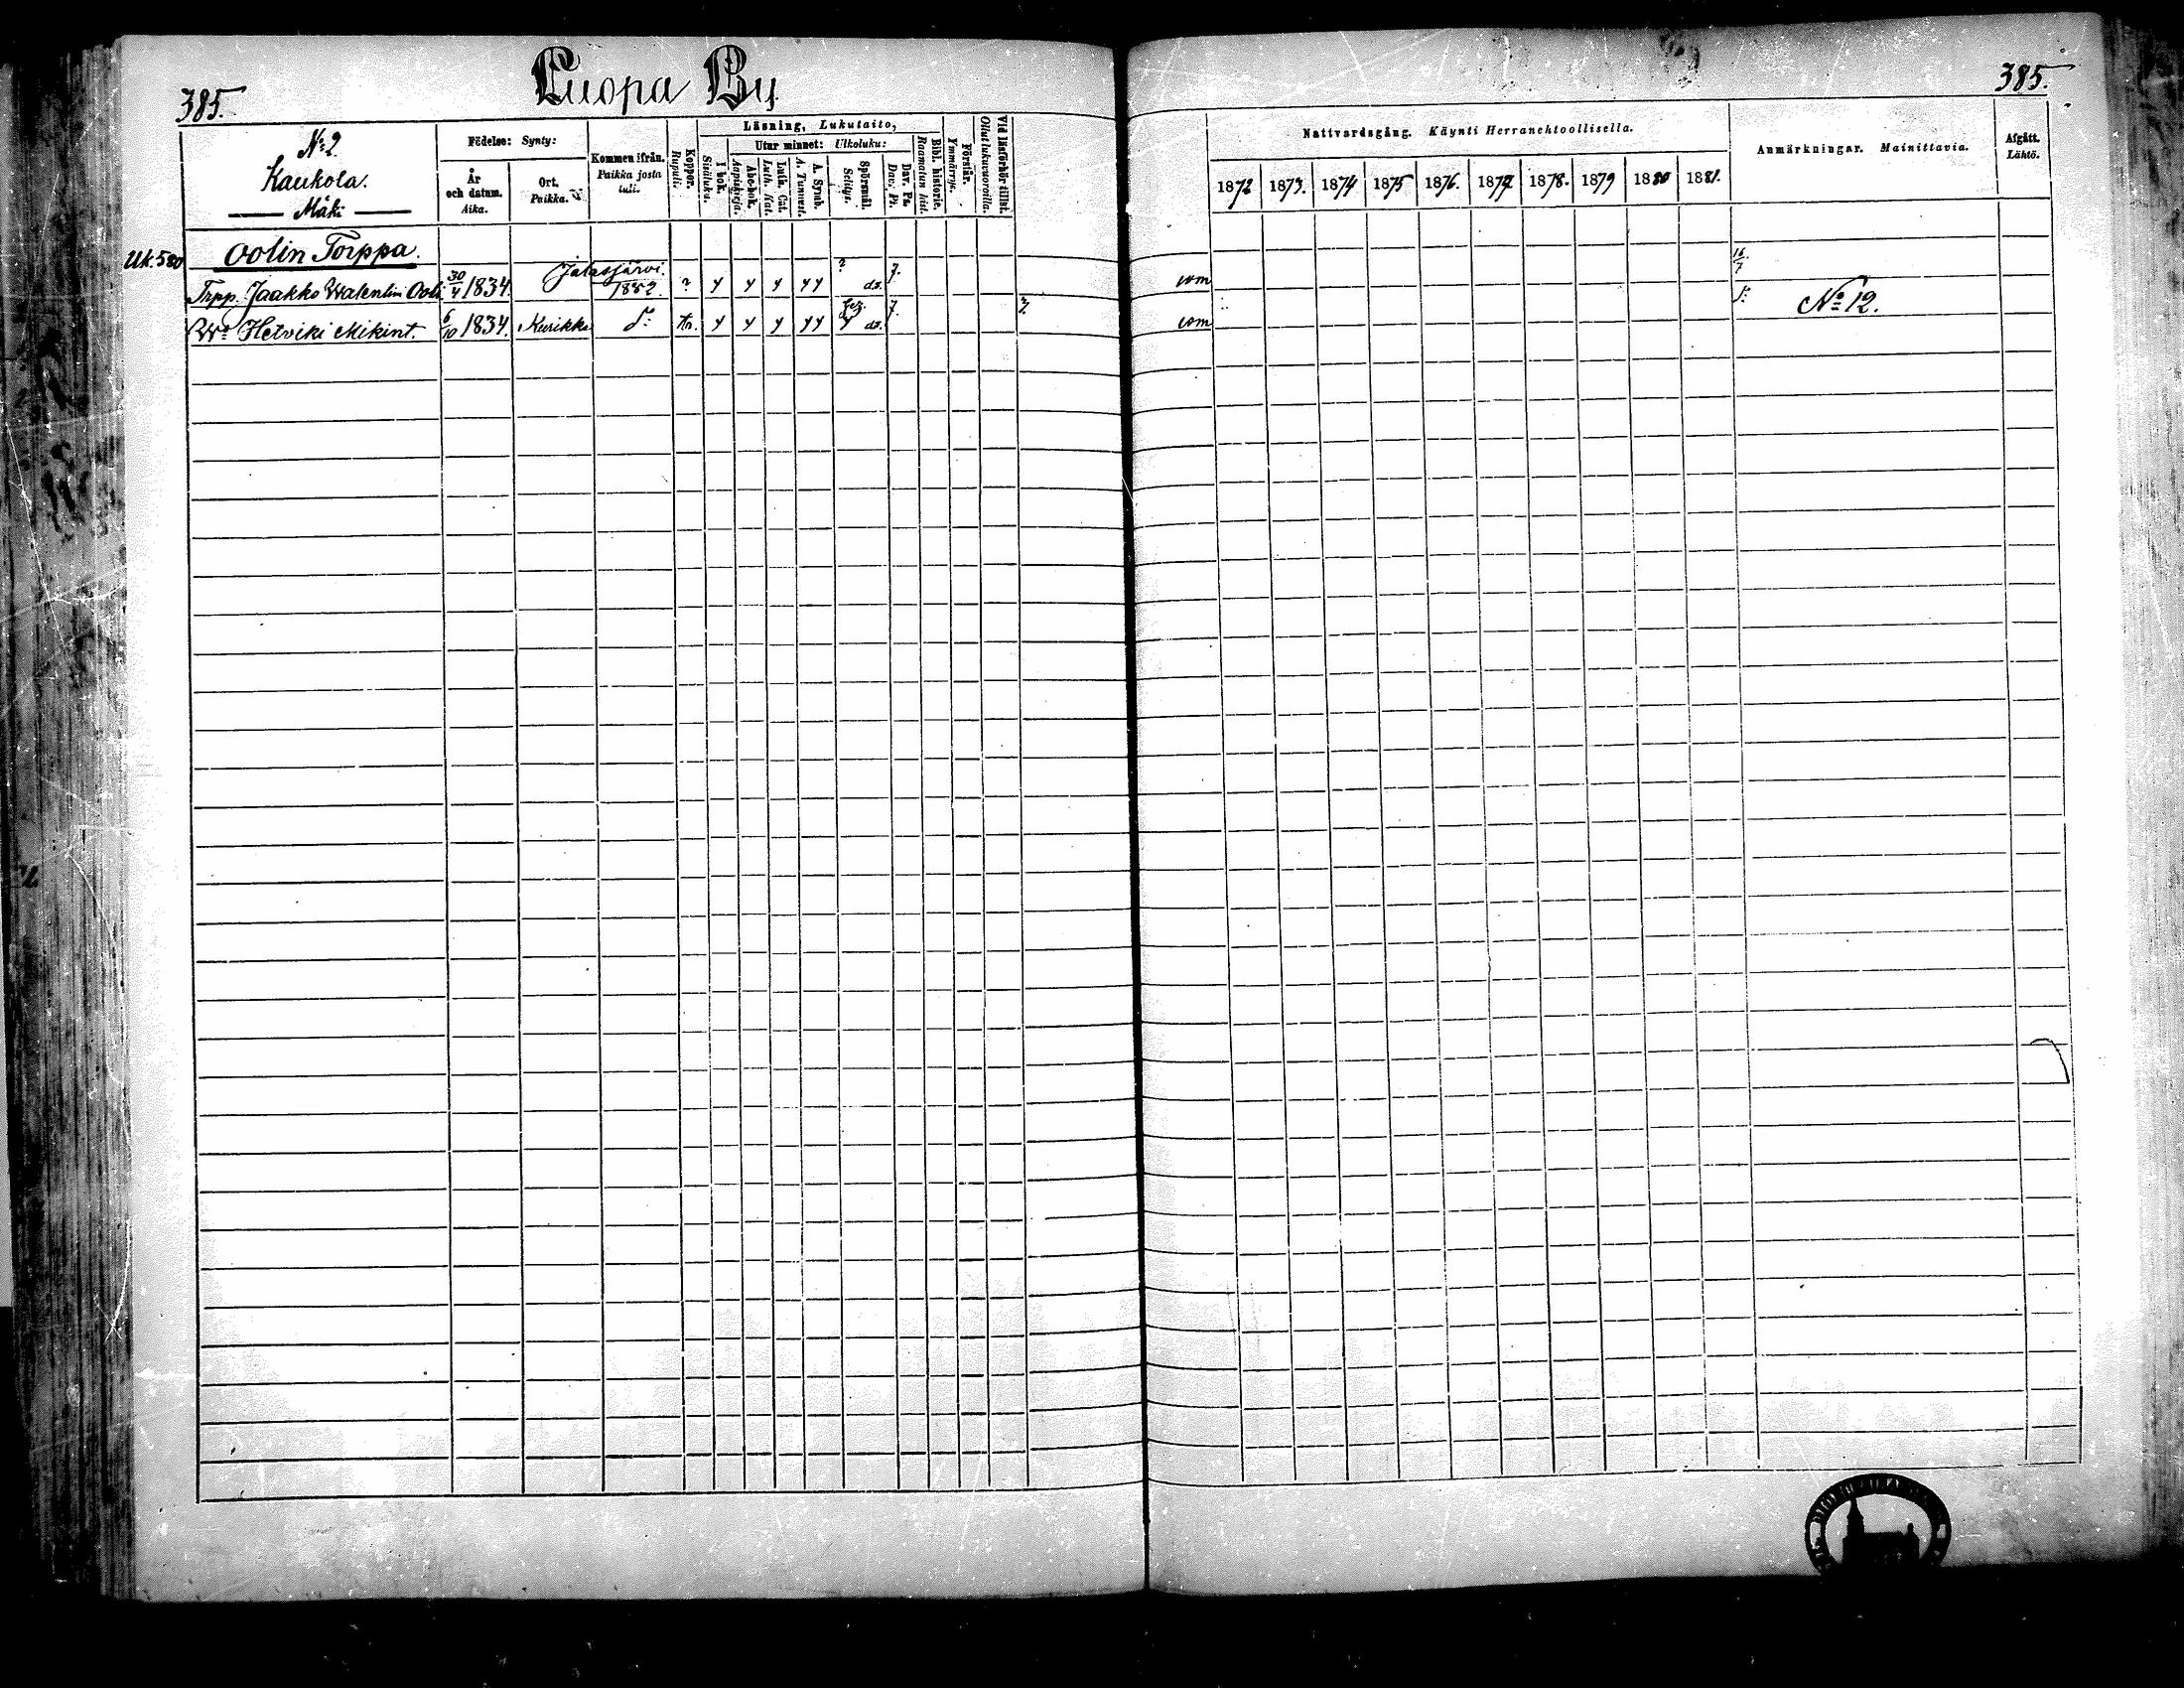 385.
Luopa By
385.
No 2.
Kaukola.
Mäki
Födelse: Synty:
År och datum. Aika.
Ort. Paikka.
Kommen ifrån. Paikka josta tuli.
Koppor. Rupuli.
Läsning, Lukutaito,
I bok. Sisäluku.
Utur minnet: Ulkoluku:
Abc-bok. Aapiskirja.
Luth. Cat. Luth. Kat.
A. Symb. A. Tunnust.
Spörsmål. Selitys.
Dav. Ps. Dav. Ps.
Bibl. historie. Raamatun hist.
Förstår. Ymmärrys.
Vid läsförhör tillst. Ollut lukuvuoroilla.
Nattvardsgång. Käynti Herranehtoollisella.
1872 1873. 1874 1875 1876. 1877 1878. 1879 1880 1881.
Anmärkningar. Mainittavia.
Afgått. Lähtö.
Uk. 580 Oolin Torppa.
Trpp. Jaakko Walentin Ooli 30/4 1834. Jalasjärvi. 1882. 7. com 16/7
Wo Hetviki Mikint. 6/10 1834. Kurikka 7. com No 12.